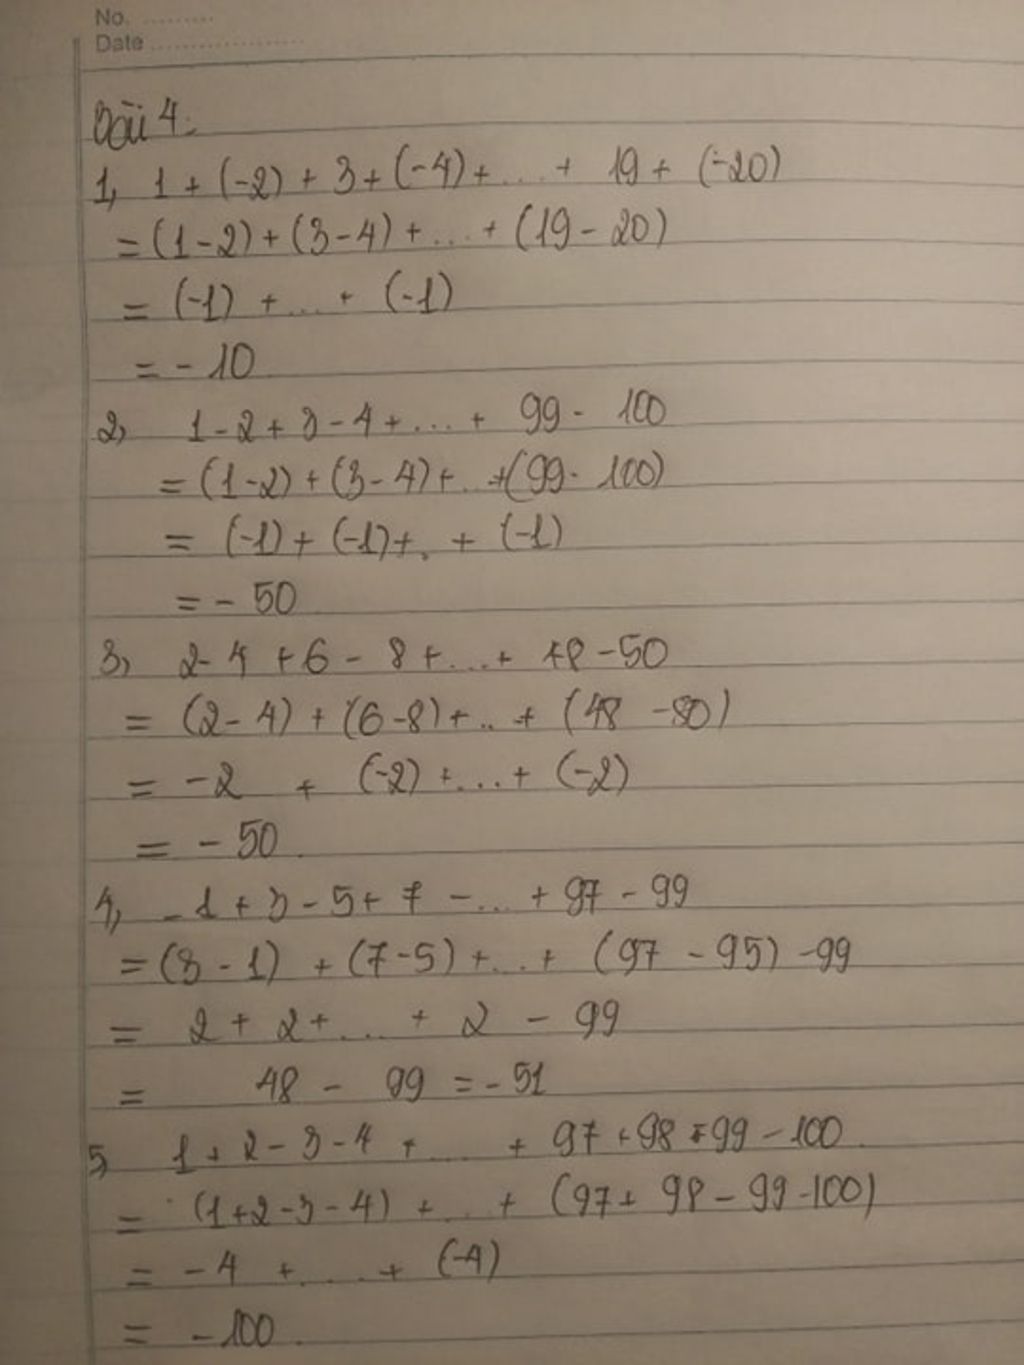 No. ..........
Date ......................
Bài 4:
1, 1 + (-2) + 3 + (-4) + ... + 19 + (-20)
= (1 - 2) + (3 - 4) + ... + (19 - 20)
= (-1) + ... + (-1)
= - 10
2, 1 - 2 + 3 - 4 + ... + 99 - 100
= (1 - 2) + (3 - 4) + .. + (99 - 100)
= (-1) + (-1) + . + (-1)
= - 50
3, 2 - 4 + 6 - 8 + ... + 48 - 50
= (2 - 4) + (6 - 8) + .. + (48 - 50)
= -2 + (-2) + ... + (-2)
= - 50
4, - 1 + 3 - 5 + 7 - ... + 97 - 99
= (3 - 1) + (7 - 5) + ... + (97 - 95) - 99
= 2 + 2 + ... + 2 - 99
= 48 - 99 = - 51
5, 1 + 2 - 3 - 4 + ... + 97 + 98 - 99 - 100
= (1 + 2 - 3 - 4) + ... + (97 + 98 - 99 - 100)
= - 4 + ... + (-4)
= - 100